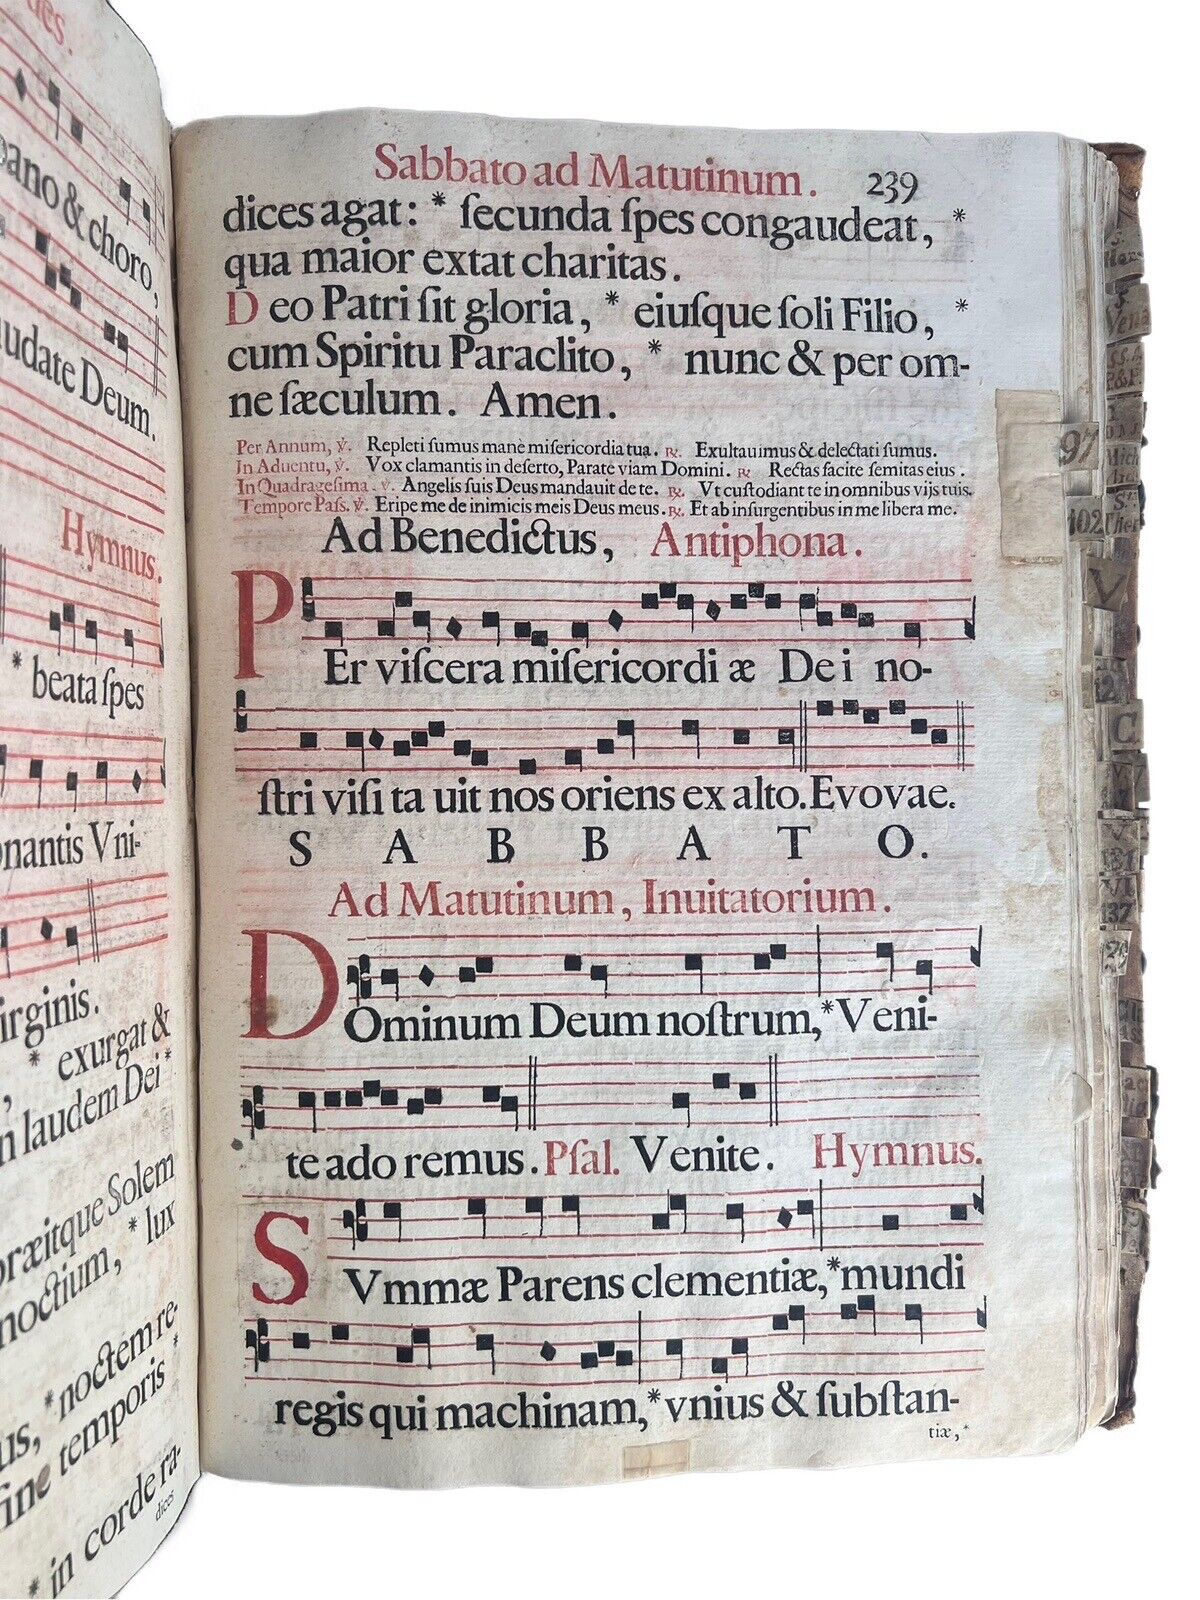 des.
pano & choro,
audate Deum.
Hymnus.
* beata ſpes
onantis Vni-
irginis.
* exurgat &
n laudem Dei *
præitque Solem
noctium, * lux
us, * noctem re-
fine temporis *
* in corde ra-
dices
Sabbato ad Matutinum. 239
dices agat: * ſecunda ſpes congaudeat, *
qua maior extat charitas.
Deo Patri ſit gloria, * eiuſque ſoli Filio, *
cum Spiritu Paraclito, * nunc & per om-
ne ſæculum. Amen.
Per Annum, ℣. Repleti ſumus manè miſericordia tua. ℟. Exultauimus & delectati ſumus.
In Aduentu, ℣. Vox clamantis in deſerto, Parate viam Domini. ℟. Rectas facite ſemitas eius.
In Quadrageſima. ℣. Angelis ſuis Deus mandauit de te. ℟. Vt cuſtodiant te in omnibus vijs tuis.
Tempore Paſſ. ℣. Eripe me de inimicis meis Deus meus. ℟. Et ab inſurgentibus in me libera me.
Ad Benedictus, Antiphona.
PEr viſcera miſericordi æ De i no-
ſtri viſi ta uit nos oriens ex alto. Evovae.
S A B B A T O.
Ad Matutinum, Inuitatorium.
DOminum Deum noſtrum, * Veni-
te ado remus. Pſal. Venite. Hymnus.
SVmmæ Parens clementiæ, * mundi
regis qui machinam, * vnius & ſubſtan-
tiæ, *
97
102
V
C
137